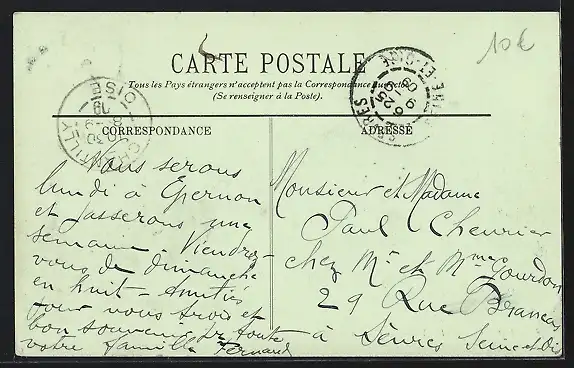 CARTE POSTALE
10€
Tous les Pays étrangers n'acceptent pas la Correspondance au recto
(Se renseigner à la Poste).
CORRESPONDANCE
ADRESSE
OISE
SEINE-ET-OISE
SÈVRES
Nous serons
lundi à Epernon
et passerons une
semaine. Viendrez-
vous de dimanche
en huit - Amitiés
pour vous trois et
bon souvenir pr toute
votre famille Fernand
Monsieur et Madame
Paul Cheurier
chez Mr. et Mme Gourdon
29 Rue Brancas
à Sèvres Seine et Oise